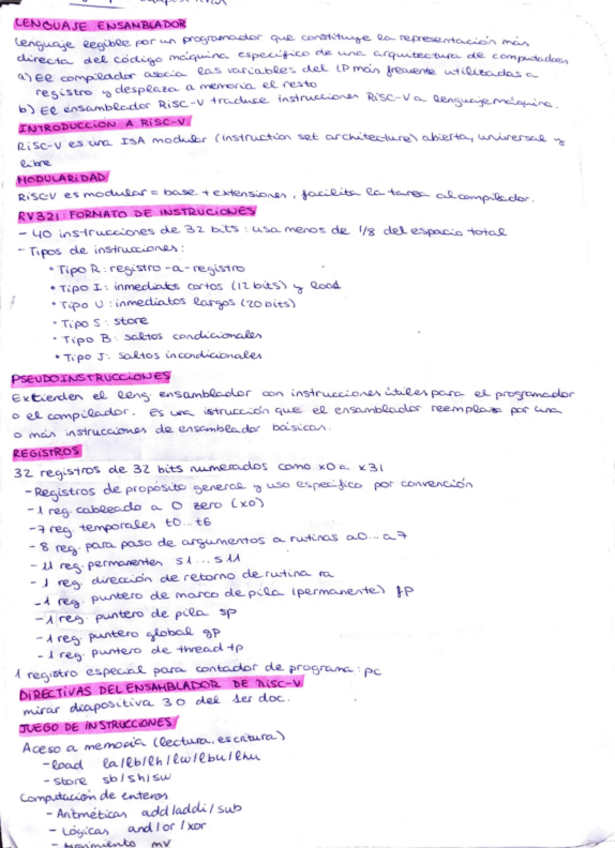 LENGUAJE ENSAMBLADOR
Lenguaje legible por un programador que constituye la representación más
directa del código máquina específico de una arquitectura de computadoras
a) El compilador asocia las variables del LP más frecuente utilizadas a
registro y desplaza a memoria el resto
b) El ensamblador RISC-V traduce instrucciones RISC-V a lenguaje máquina.
INTRODUCCIÓN A RISC-V
RISC-V es una ISA modular (instruction set architecture) abierta, universal y
libre
MODULARIDAD
RISC-V es modular = base + extensiones, facilita la tarea al compilador.
RV32I: FORMATO DE INSTRUCIONES
- 40 instrucciones de 32 bits: usa menos de 1/8 del espacio total
- Tipos de instrucciones:
• Tipo R: registro-a-registro
• Tipo I: inmediatos cortos (12 bits) y load
• Tipo U: inmediatos largos (20 bits)
• Tipo S: store
• Tipo B: saltos condicionales
• Tipo J: saltos incondicionales
PSEUDOINSTRUCCIONES
Extienden el leng. ensamblador con instrucciones útiles para el programador
o el compilador. Es una istrucción que el ensamblador reemplaza por una
o más instrucciones de ensamblador básicas.
REGISTROS
32 registros de 32 bits numerados como x0 a x31
- Registros de propósito general y uso específico por convención
- 1 reg. cableado a 0 zero (x0)
- 7 reg. temporales t0...t6
- 8 reg. para paso de argumentos a rutinas a0...a7
- 11 reg. permanentes s1...s11
- 1 reg. dirección de retorno de rutina ra
- 1 reg. puntero de marco de pila (permanente) fp
- 1 reg. puntero de pila sp
- 1 reg. puntero global gp
- 1 reg. puntero de thread tp
1 registro especial para contador de programa: pc
DIRECTIVAS DEL ENSAMBLADOR DE RISC-V
mirar diapositiva 30 del 1er doc.
JUEGO DE INSTRUCCIONES
Aceso a memoria (lectura, escritura)
- load la/lb/lh/lw/lbu/lhu
- store sb/sh/sw
Computación de enteros
- Aritméticas add/addi/sub
- Lógicas and/or/xor
- Movimiento mv